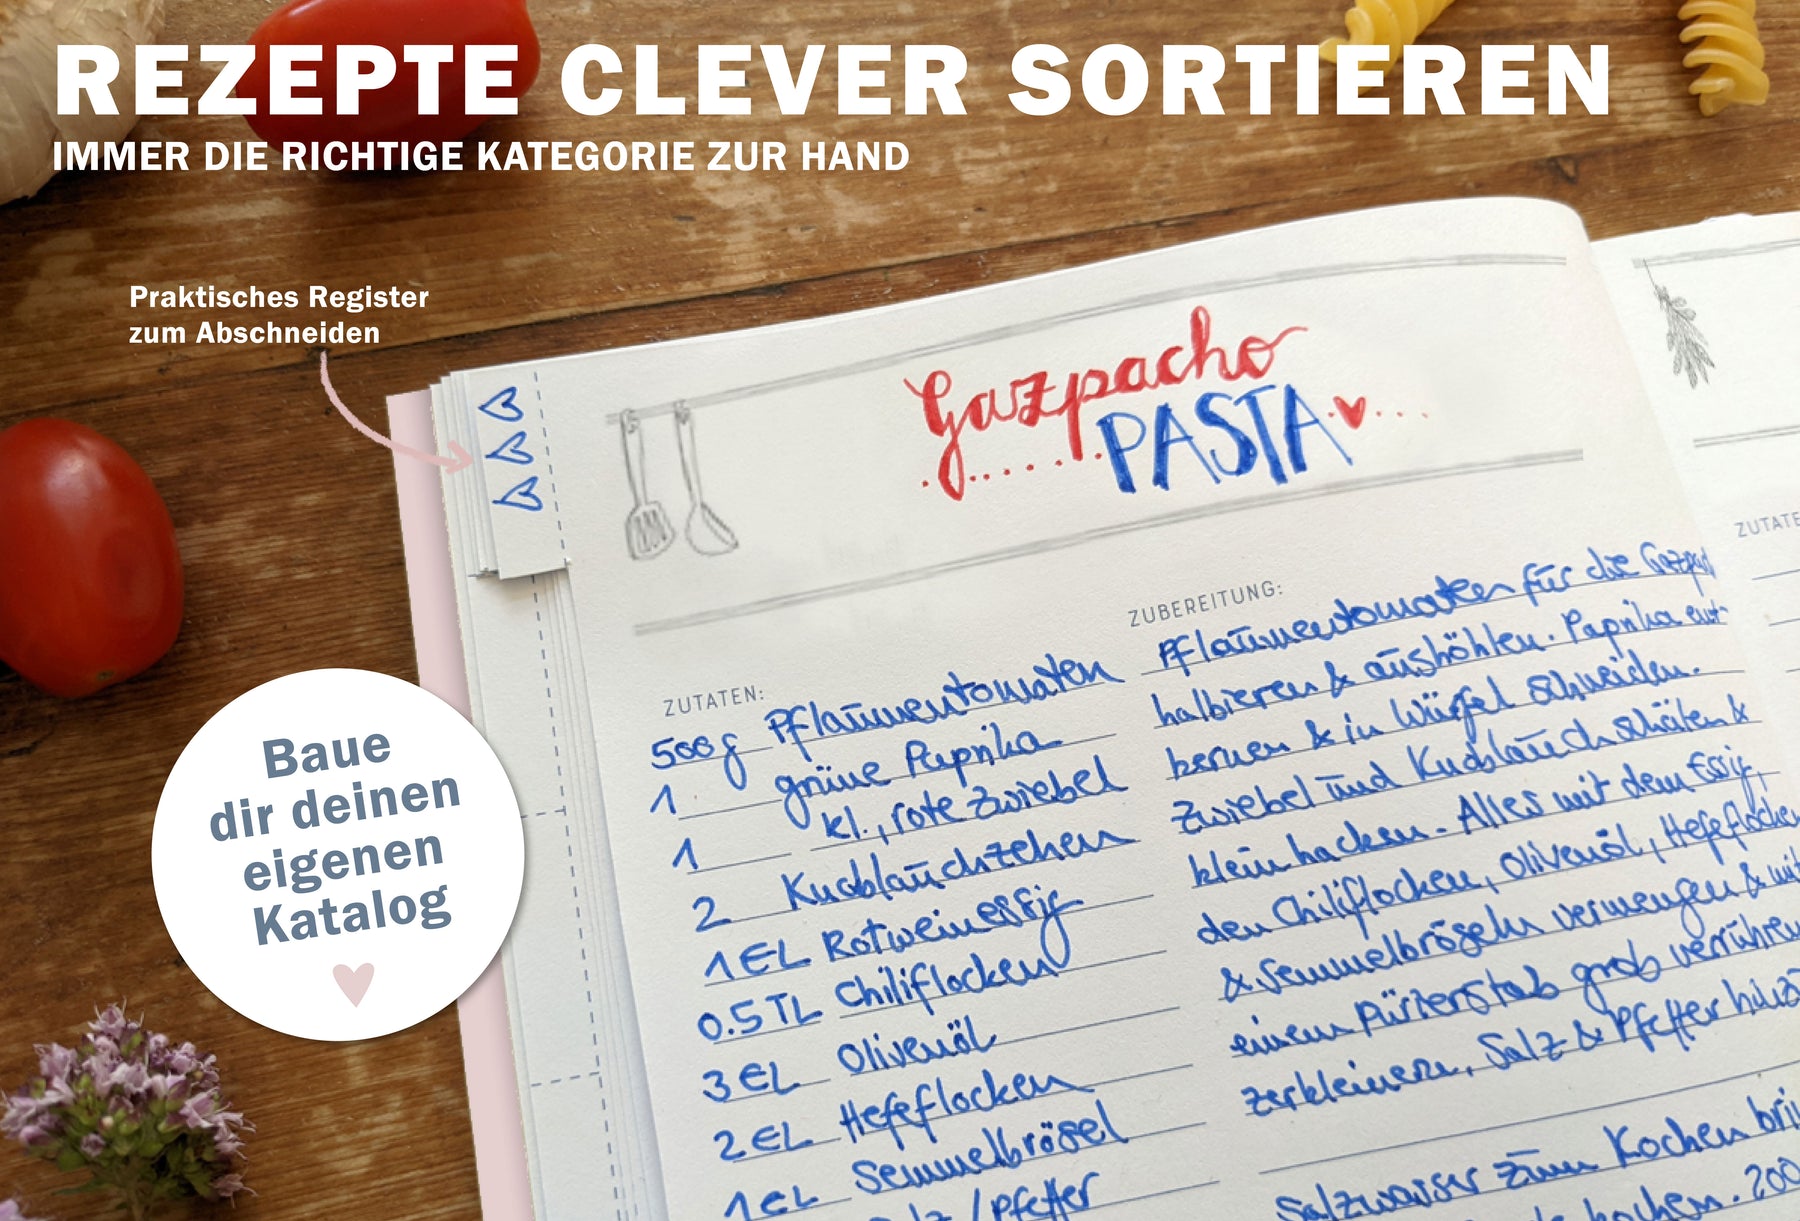 REZEPTE CLEVER SORTIEREN
IMMER DIE RICHTIGE KATEGORIE ZUR HAND
Praktisches Register
zum Abschneiden
Baue
dir deinen
eigenen
Katalog
Gazpacho
PASTA
ZUTATEN:
500g Pflaumentomaten
1 grüne Paprika
1 kl., rote Zwiebel
2 Knoblauchzehen
1 EL Rotweinessig
0.5 TL Chiliflocken
3 EL Olivenöl
2 EL Hefeflocken
1 EL Semmelbrösel
Salz/Pfeffer
ZUBEREITUNG:
Pflaumentomaten für die
halbieren & aushöhlen. Paprika ent-
kernen & in Würfel schneiden.
Zwiebel und Knoblauch schälen &
klein hacken. Alles mit dem Essig,
den Chiliflocken, Olivenöl, Hefeflocken
& Semmelbröseln vermengen & mit
einem Pürierstab grob verrühren
zerkleinern, Salz & Pfeffer
Salzwasser zum Kochen
kochen. 200